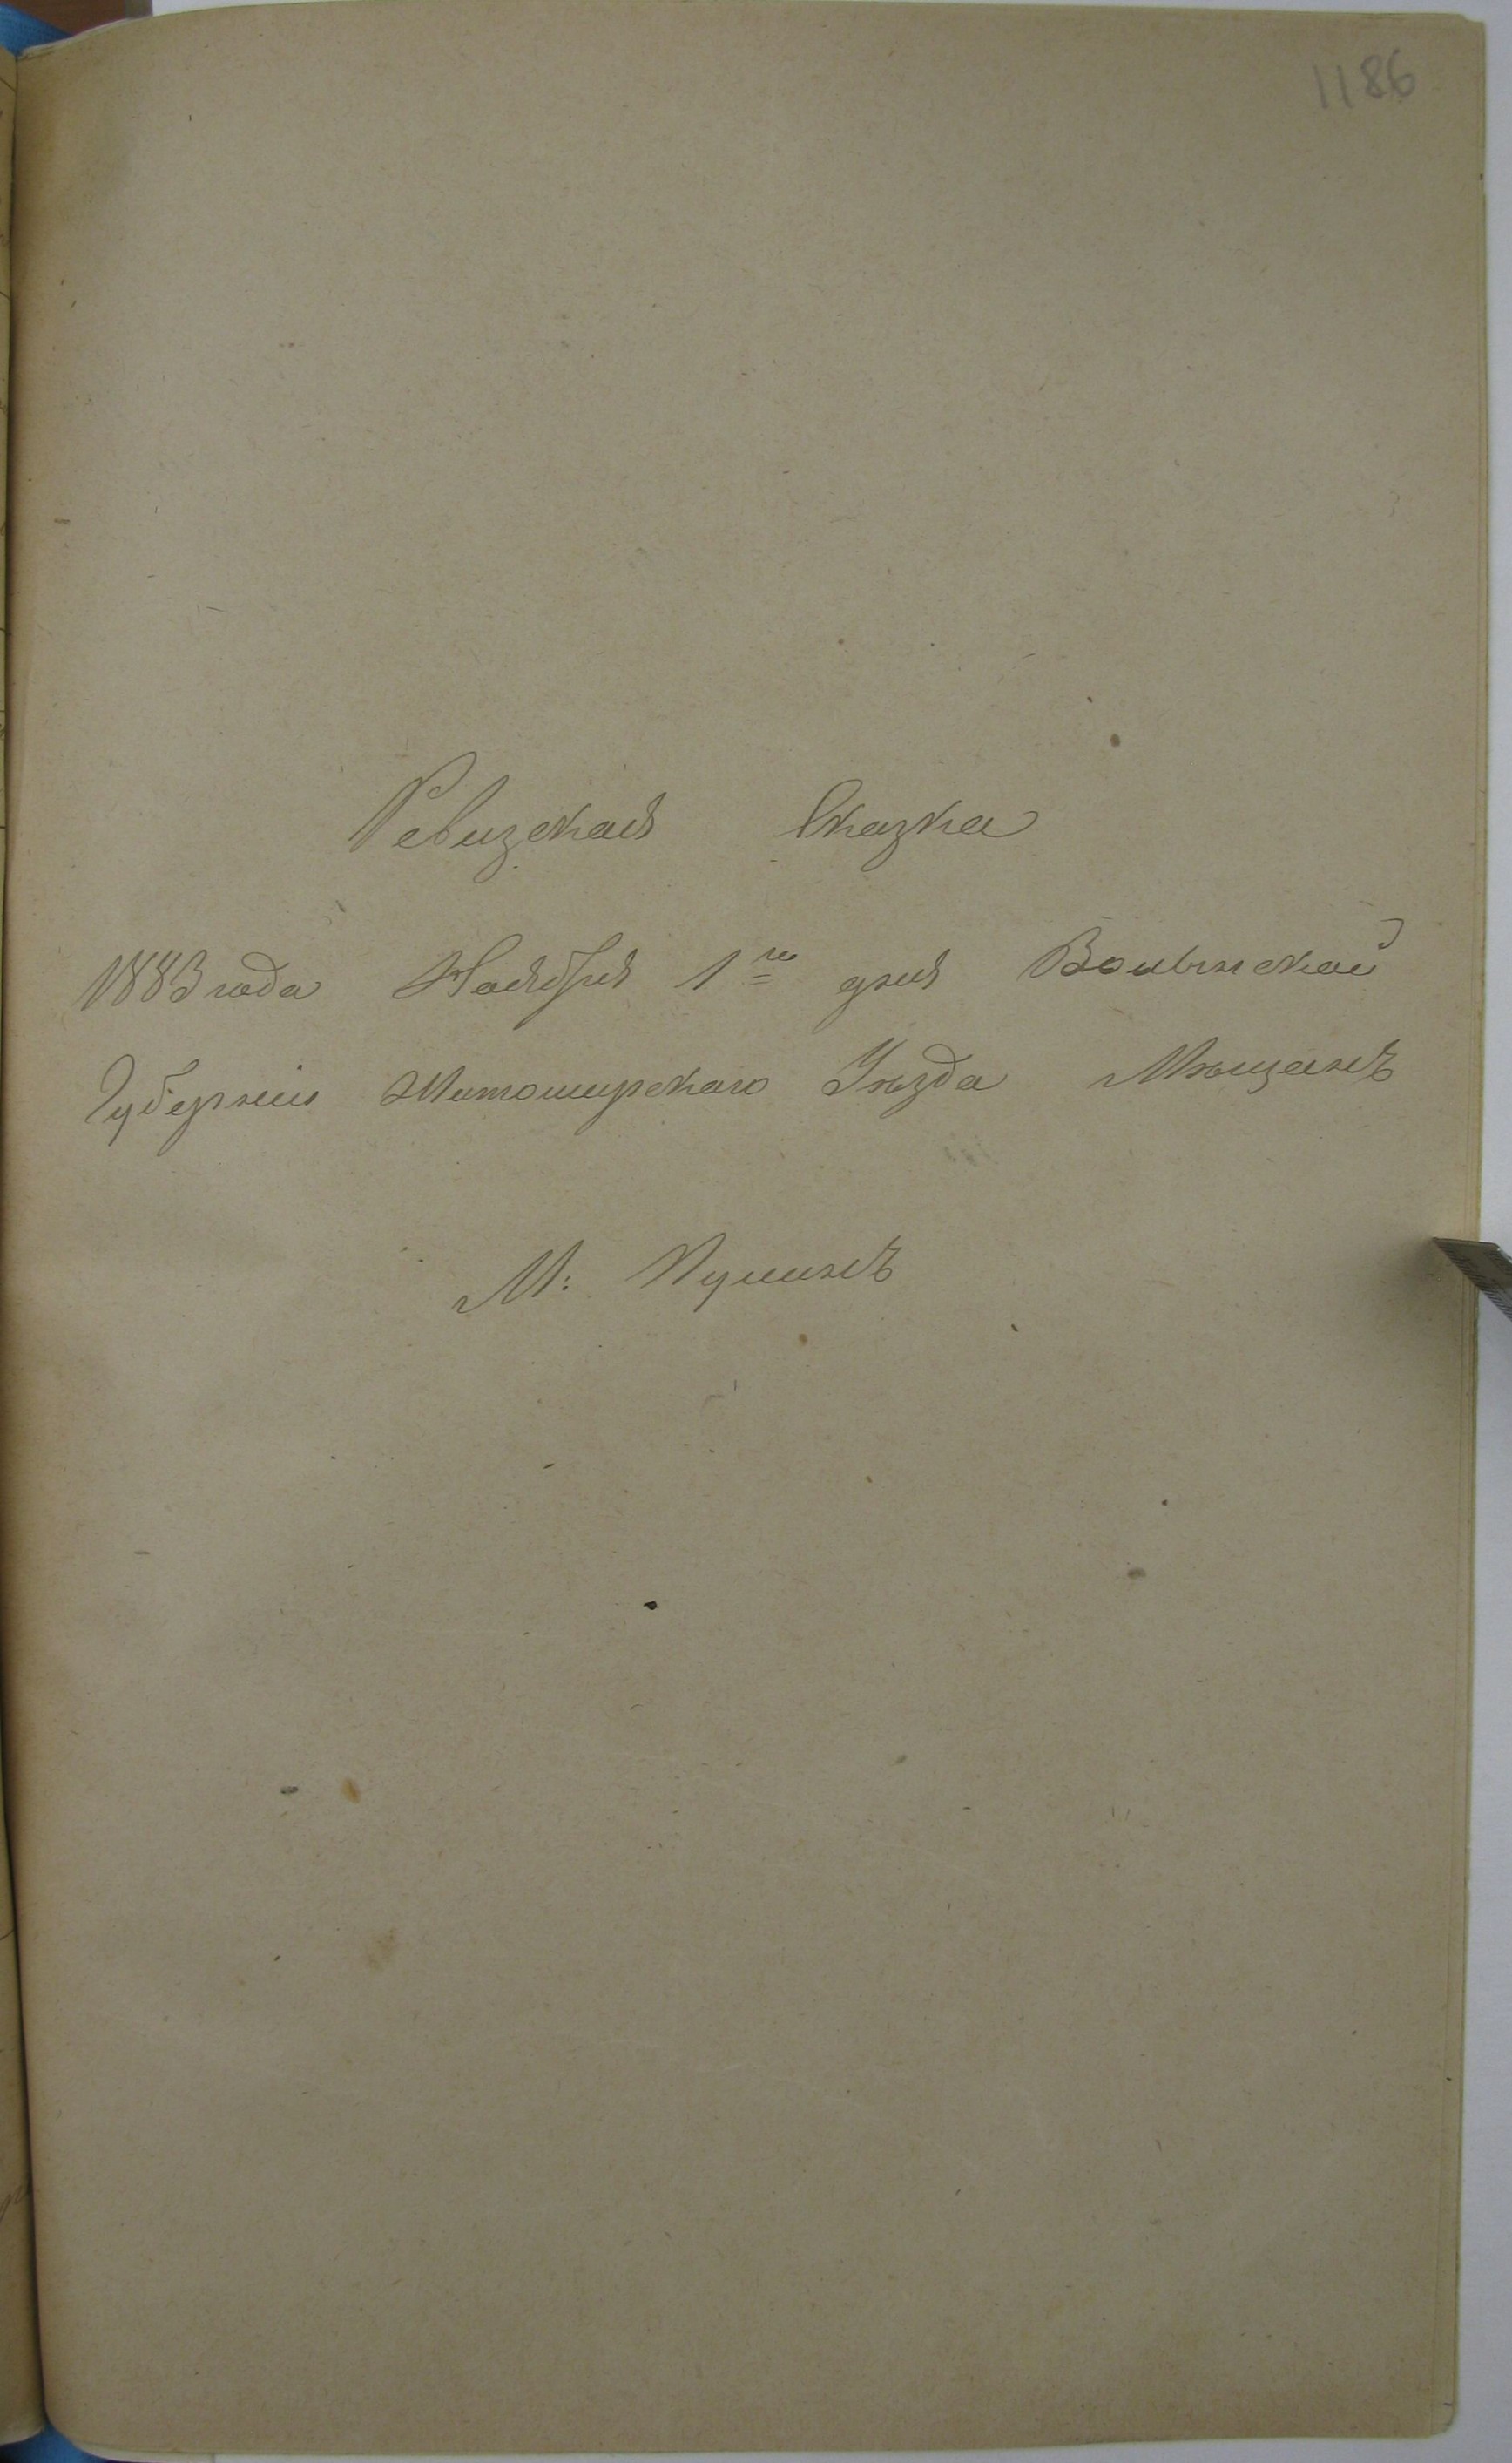 1186
Ревизская Сказка
1883 года Ноября 1го дня Волынской
Губерніи Житомирскаго Уѣзда Мѣщанъ
М: Пулинъ